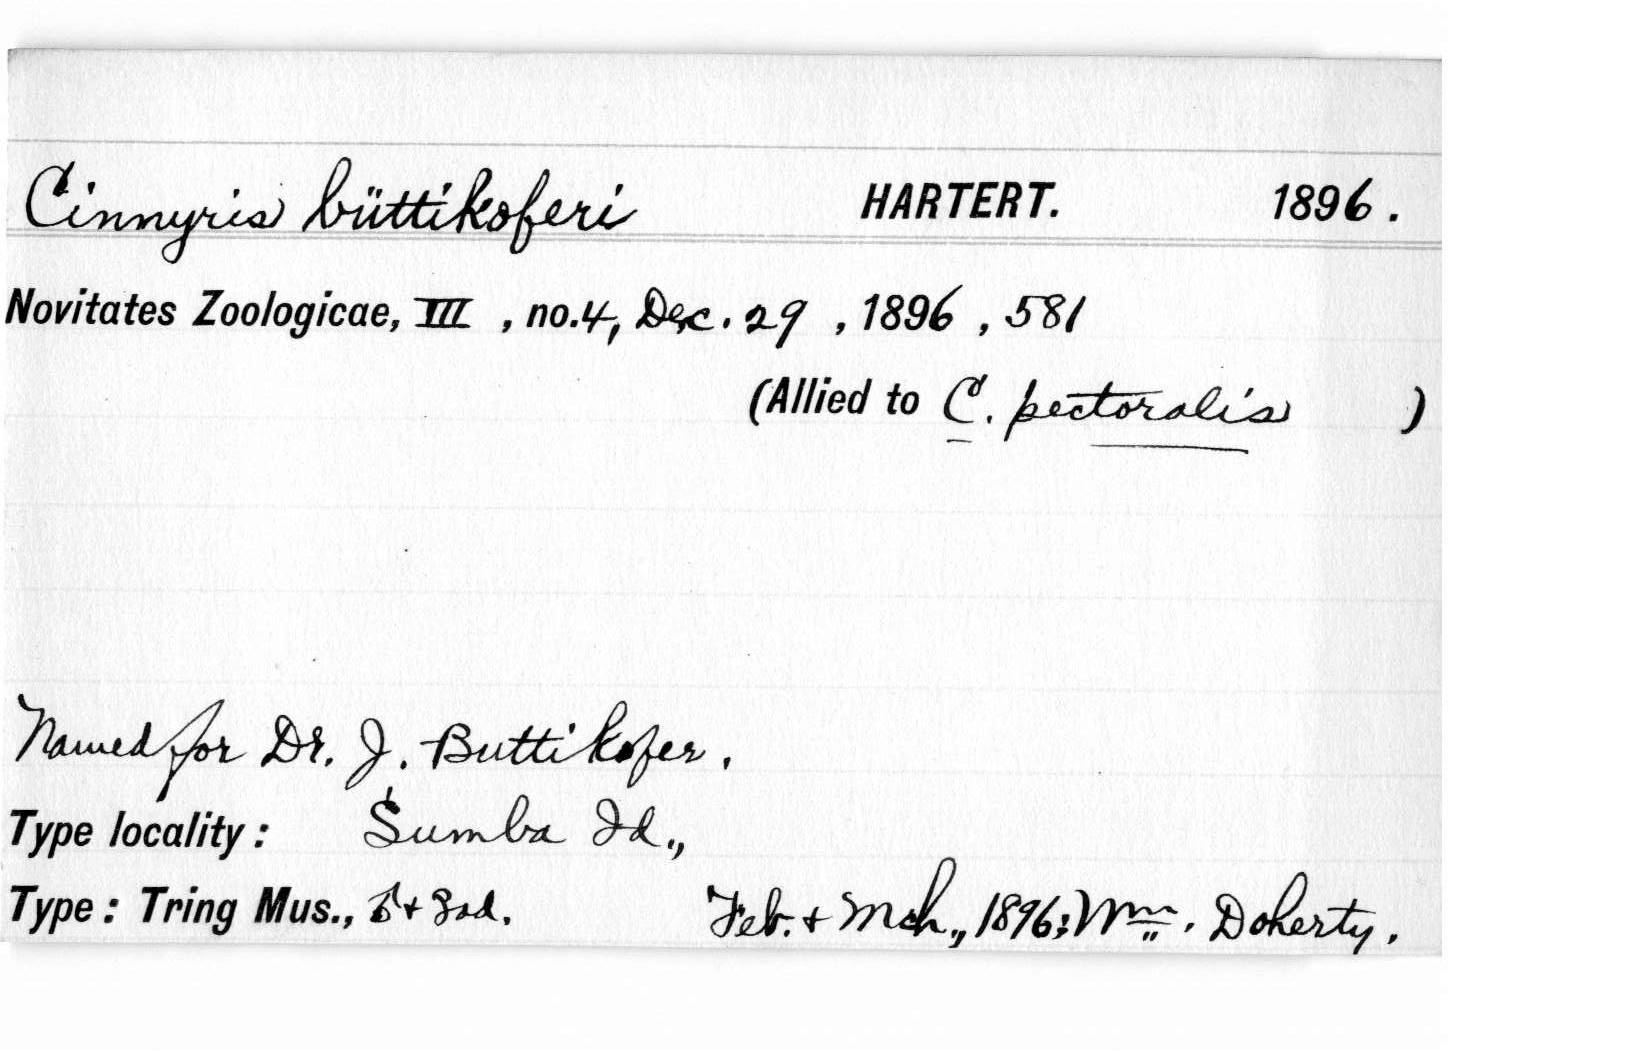 Cinnyris büttikoferi HARTERT. 1896.
Novitates Zoologicae, III, no.4, Dec. 29, 1896, 581
(Allied to C. pectoralis)
Named for Dr. J. Buttikofer.
Type locality: Sumba Id.,
Type: Tring Mus., ad. Feb. + Mch., 1896; Wm. Doherty.